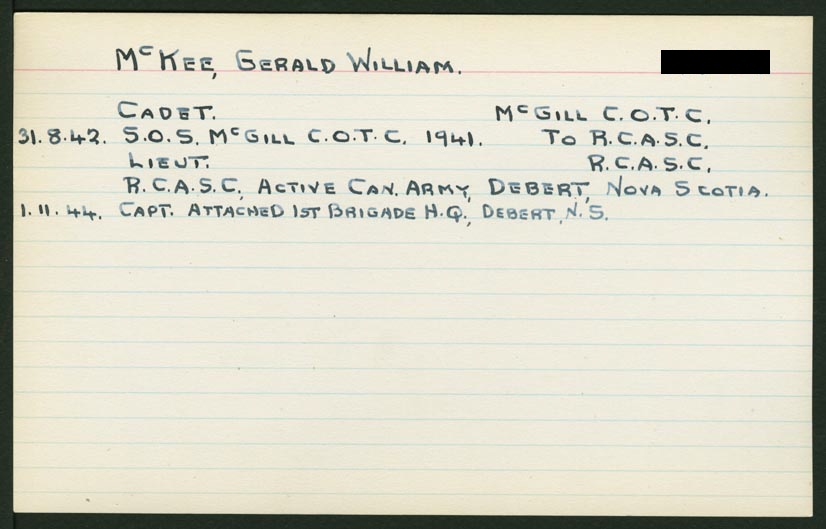 McKEE, GERALD WILLIAM.
CADET. McGILL C.O.T.C.
31.8.42. S.O.S. McGILL C.O.T.C. 1941. TO R.C.A.S.C.
LIEUT. R.C.A.S.C.
R.C.A.S.C. ACTIVE CAN. ARMY, DEBERT, NOVA SCOTIA.
1.11.44. CAPT. ATTACHED 1ST BRIGADE H.Q., DEBERT, N.S.